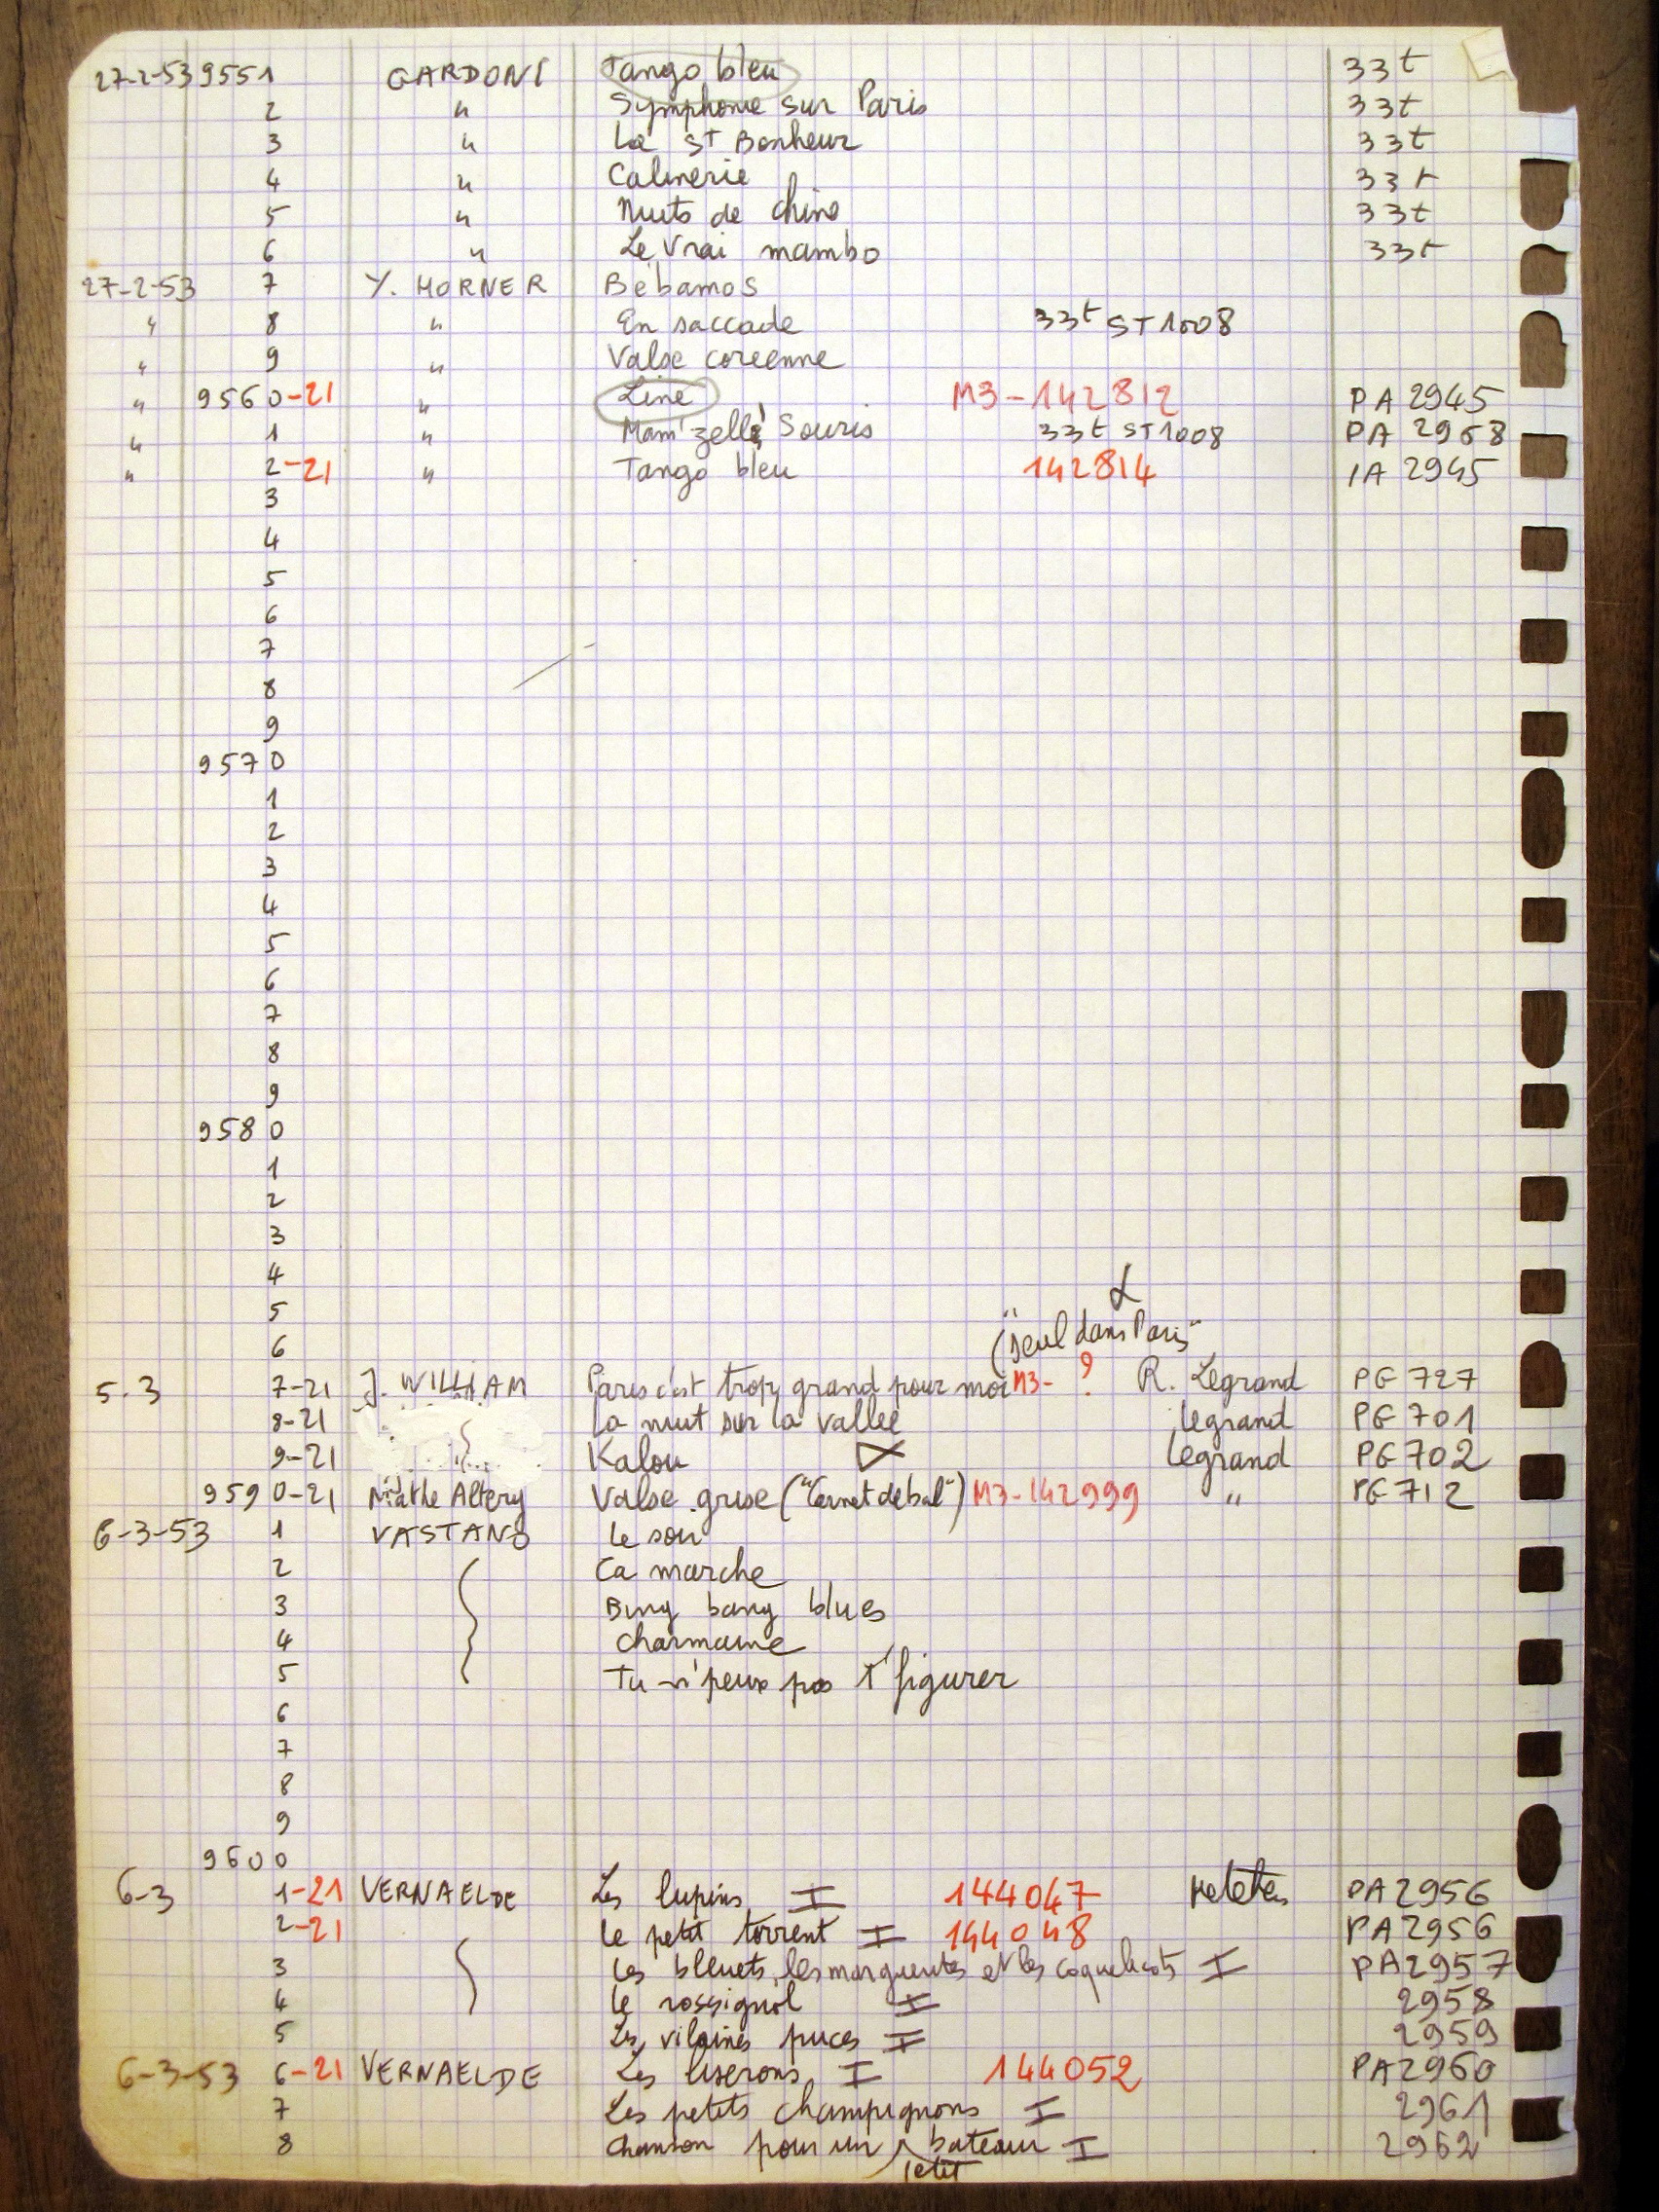 27-2-53 9551 GARDONI Tango bleu 33t
2 " Symphonie sur Paris 33t
3 " La ST Bonheur 33t
4 " Calinerie 33t
5 " Nuits de chine 33t
6 " Le Vrai mambo 33t
27-2-53 7 Y. HORNER Bébamos
" 8 " En saccade 33t ST1008
" 9 " Valse coreenne
" 9560-21 " Line M3-142812 PA 2945
" 1 " Mam'zelle Souris 33t ST1008 PA 2968
" 2-21 " Tango bleu 142814 PA 2945
3
4
5
6
7
8
9
9570
1
2
3
4
5
6
7
8
9
9580
1
2
3
4
5
6
("Seul dans Paris"
5.3 7-21 J. WILLIAM Paris c'est trop grand pour moi M3- ? R. Legrand PG 727
8-21 La nuit sur la vallée Legrand PG 701
9-21 Kalou Legrand PG 702
9590-21 Mathe Altery Valse grise ("Carnet de bal") M3-142999 " PG 712
6-3-53 1 VASTANO Le soir
2 Ca marche
3 Bing bang blues
4 Charmaine
5 Tu n'peux pas t'figurer
6
7
8
9
9600
6-3 1-21 VERNAELDE Les lupins I 144047 PA2956
2-21 Le petit torrent I 144048 PA2956
3 Les bleuets, les marguerites et les coquelicots I PA2957
4 Le rossignol I 2958
5 Les vilaines puces I 2959
6-3-53 6-21 VERNAELDE Les liserons I 144052 PA2960
7 Les petits champignons I 2961
8 Chanson pour un petit bateau I 2962